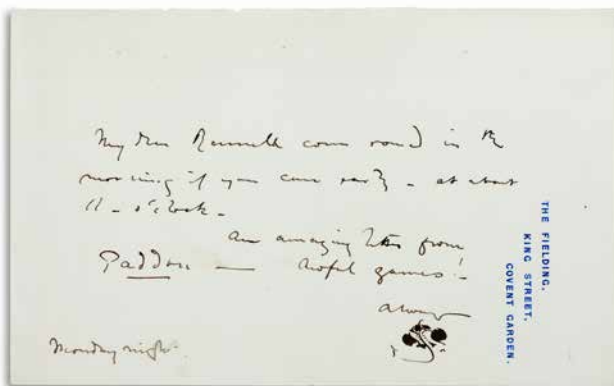 My dear Rennell come round in the
morning if you can early - at about
11 - o'clock -
An amazing letter from
Paddon — awful games!
always
Monday night.
THE FIELDING,
KING STREET,
COVENT GARDEN.